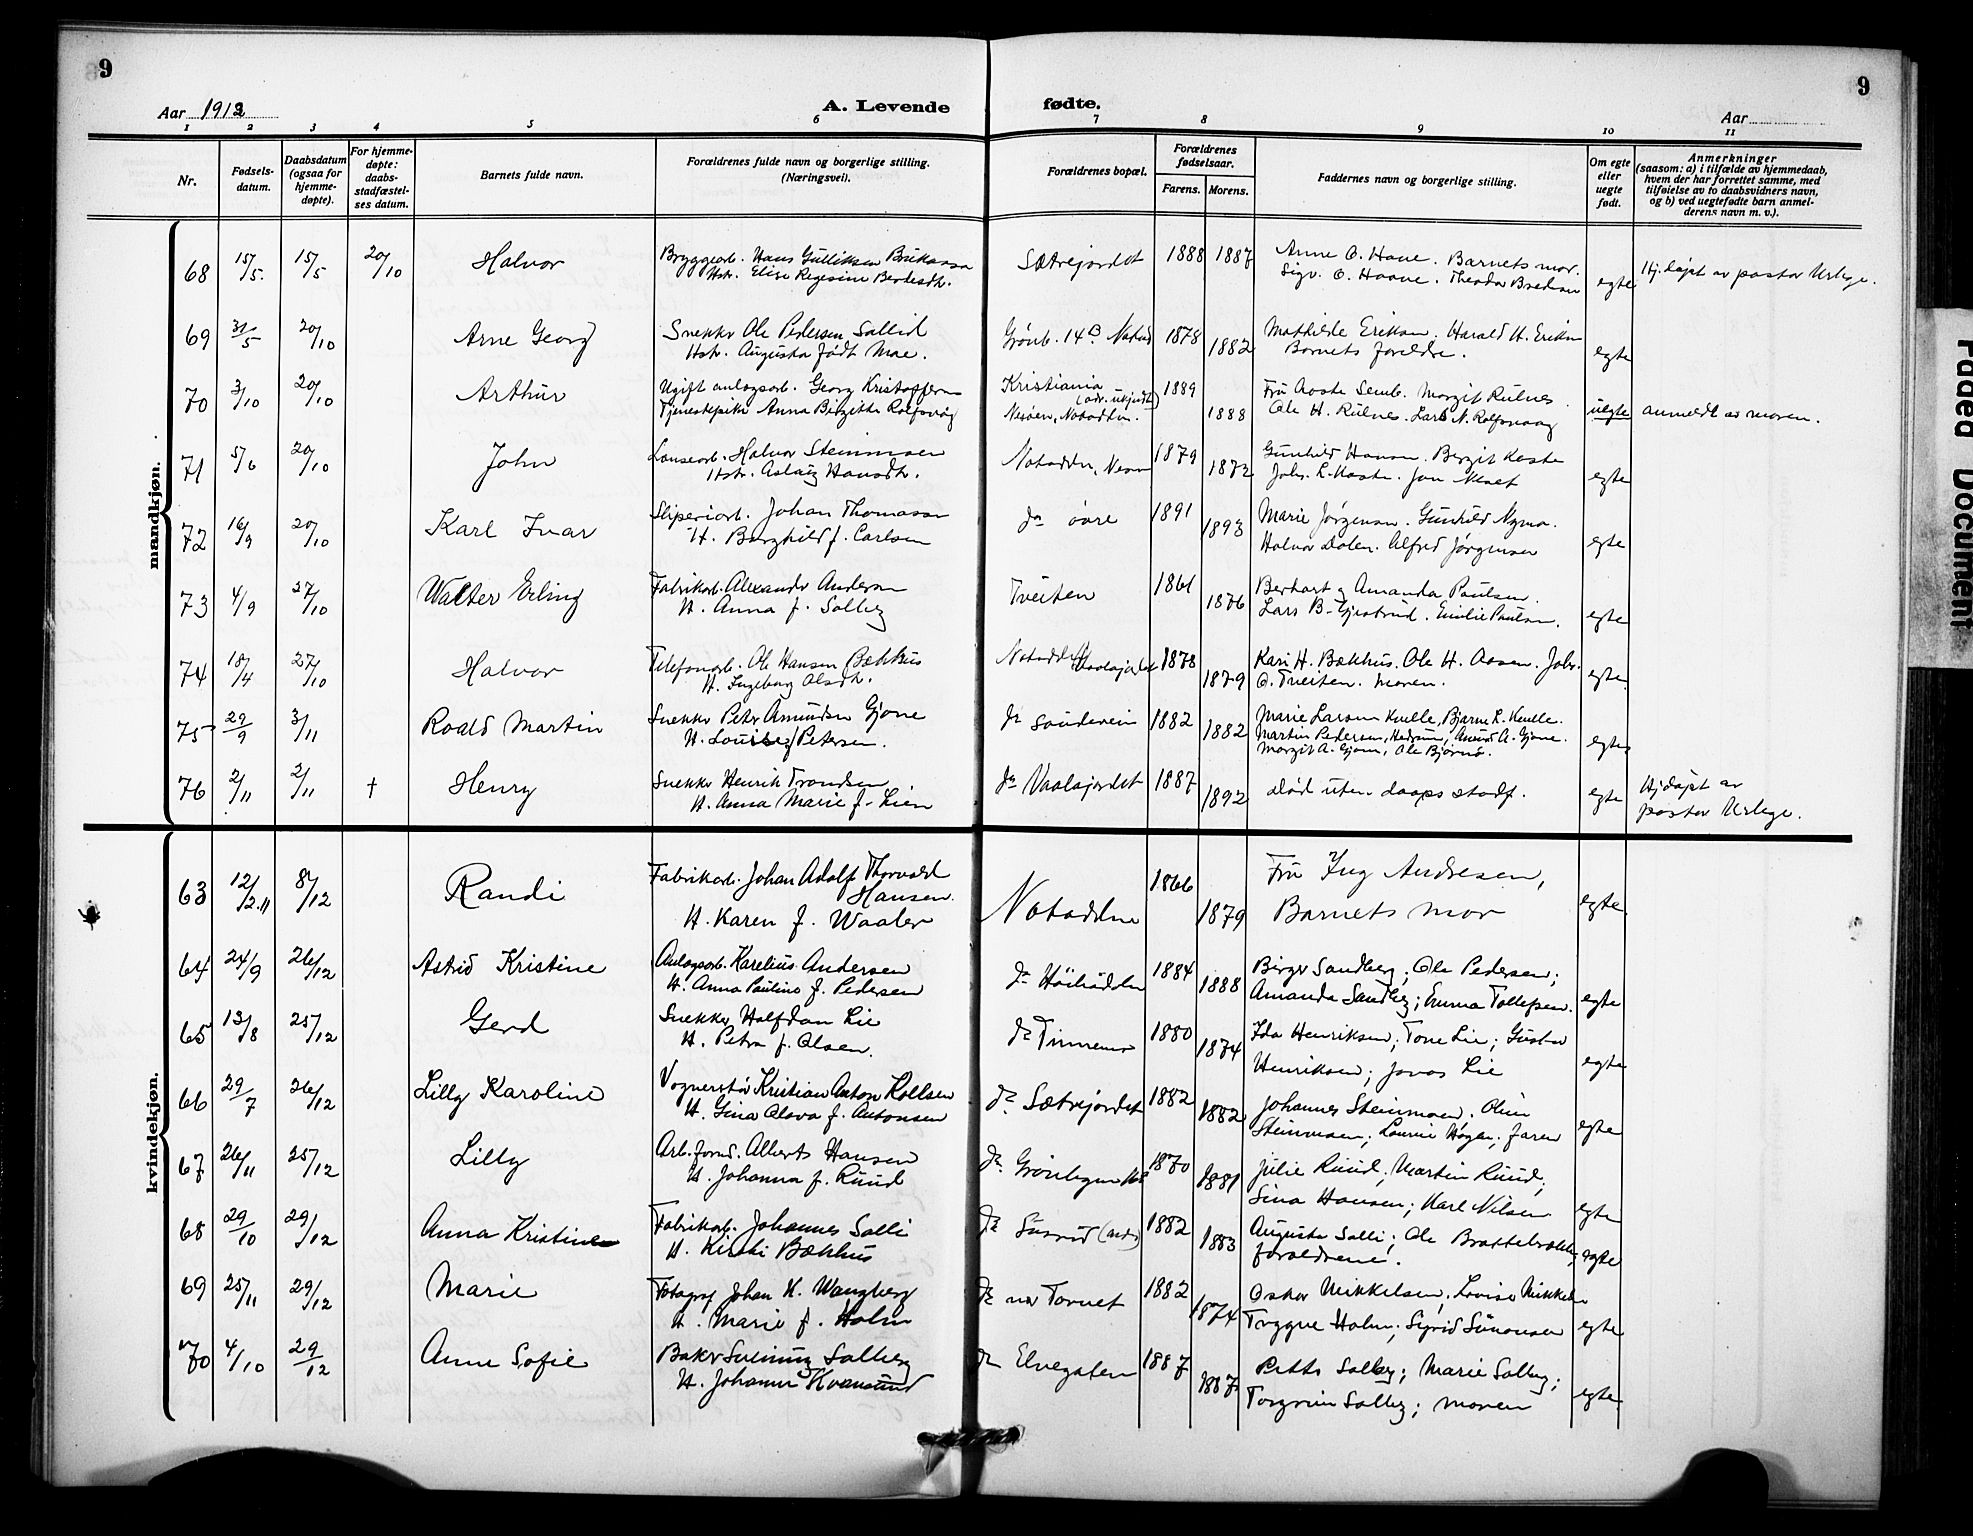 9
9
Aar 1912
A. Levende fødte.
Aar
1 2 3 4 5 6 7 8 9 10 11
Nr.
Fødsels-
datum.
Daabsdatum
(ogsaa for
hjemme-
døpte).
For hjemme-
døpte:
daabs-
stadfæstel-
ses datum.
Barnets fulde navn.
Forældrenes fulde navn og borgerlige stilling.
(Næringsvei).
Forældrenes bopæl.
Forældrenes
fødselsaar.
Farens. Morens.
Faddernes navn og borgerlige stilling.
Om egte
eller
uegte
født.
Anmerkninger
(saasom: a) i tilfælde av hjemmedaab,
hvem der har forrettet samme, med
tilføielse av to daabsvidners navn,
og b) ved uegtefødte barn anmel-
derens navn m. v.).
mandkjøn.
68 15/5. 15/5 20/10 Halvor Bryggearb. Hans Gulliksen Sætrejordet 1888 1887 Anne O. Haave. Barnets mor. egte Hj.døpt av pastor Urlege.
Hst. Elise Regesine Sigv. O. Haave. Theodor
69 31/5 20/10 Arne Georg Snekker Ole Pedersen Sollid Grønb. 14B Notod 1878 1882 Mathilde Eriksen. Harald H. Eriksn egte
Hstr. Augusta født Moe. Barnets foreldre.
70 3/10 20/10 Arthur Ugift anlagsarb. Georg Kristoffersen Kristiania 1889 1888 Fru Aaste Semb. Margit Rulnes. uegte anmeldt av moren.
Tjenestepike Anna Birgitte Rolfsvåg (adr. ukjendt) Ole H. Rulnes. Lars N. Rolfsvaag
Nesøen, Notodden.
71 5/6 20/10 John Halvor Steinmoen Notodden, Nesøen 1879 1872 Gunhild Hansen. Birgit Kaste egte
Hstr. Aslaug Hansdtr. Johs. L. Kaste. Jon
72 16/9 20/10 Karl Ivar Sliperiarb. Johan Thomassen do øvre 1891 1893 Marie Jørgensen. Gunhild Nymo. egte
H. Borghild f. Carlsen Halvor Dalen. Alfred Jørgensen
73 4/9 27/10 Walter Erling Fabrikarb. Alexander Andersen Tveiten 1861 1876 Berhart og Amanda Paulsen. egte
H. Anna f. Solberg Lars B. Gjestrud. Emilie Paulsen.
74 18/4 27/10 Halvor Telefonarb. Ole Hansen Bækhus Notodden Vaalajordet 1878 1879 Kari H. Bækhus. Ole H. Aasen. Johs. egte
H. Ingeborg Olsdtr. O. Tveiten. Moren.
75 29/9 3/11 Roald Martin Snekker Peter Amundsen Gjone do 1882 1882 Marie Larsen Knelle, Bjarne L. Knelle. egte
H. Louise f. Petersen. Martin Pedersen, Hedrum, Amund A. Gjone.
Margit A. Gjone, Ole Bjørnø.
76 2/11 2/11 † Henry Snekker Henrik Trondsen do Vaalajordet 1887 1892 død uten daaps stadf. egte Hj.døpt av
H. Anna Marie f. Lien pastor Urlege.
kvindekjøn.
63 12/2.11 8/12 Randi Fabrikarb. Johan Adolf Thorvald Notodden 1866 1879 Fru Ing Andresen, egte
Hansen. Barnets mor
H. Karen f. Waaler
64 24/9 26/12 Astrid Kristine Anlagsarb. Karelius Andersen do 1884 1888 Birger Sandberg; Ole Pedersen; egte
H. Anna Pauline f. Pedersen Amanda Sandberg; Emma Tollefsen.
65 13/8 25/12 Gerd Snekker Halfdan Lie do Tinnemo 1880 1874 Ida Henriksen; Tone Lie; Gustav egte
H. Petra f. Olsen. Henriksen; Jonas Lie
66 29/7 26/12 Lilly Karoline Kristian Anton Kollsen do Sætrejordet 1882 1882 Johannes Steinmoen. Oline egte
H. Gina Olava f. Antonsen Steinmoen; Laurine Høgen; faren
67 26/11 25/12 Lilly Arb.form. Alberts Hansen do 1870 1881 Julie Ruud; Martin Ruud; egte
H. Johanna f. Ruud Sina Hansen; Karl Nilsen
68 29/10 29/12 Anna Kristine Fabrikarb. Johannes Solli do 1882 1883 Augusta Solli; Ole egte
H. Kirsti Bækhus forældrene.
69 25/11 29/12 Marie Fotograf Johan H. Wangberg do ved Torvet 1882 1874 Oskar Mikkelsen; Lovise Mikkelsen egte
H. Marie f. Holm Trygve Holm; Sigrid Simonsen
70 4/10 29/12 Anne Sofie Baker Solberg do Elvegaten 1887 1887 Solberg; Marie Solberg; egte
H. Johanne Kvansund Torgrim Solberg; moren
Faded Document